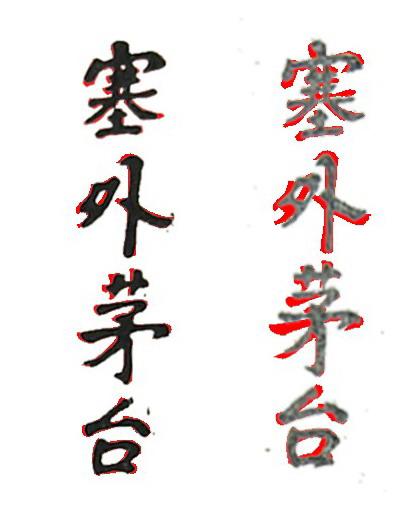 塞外茅台
塞外茅台